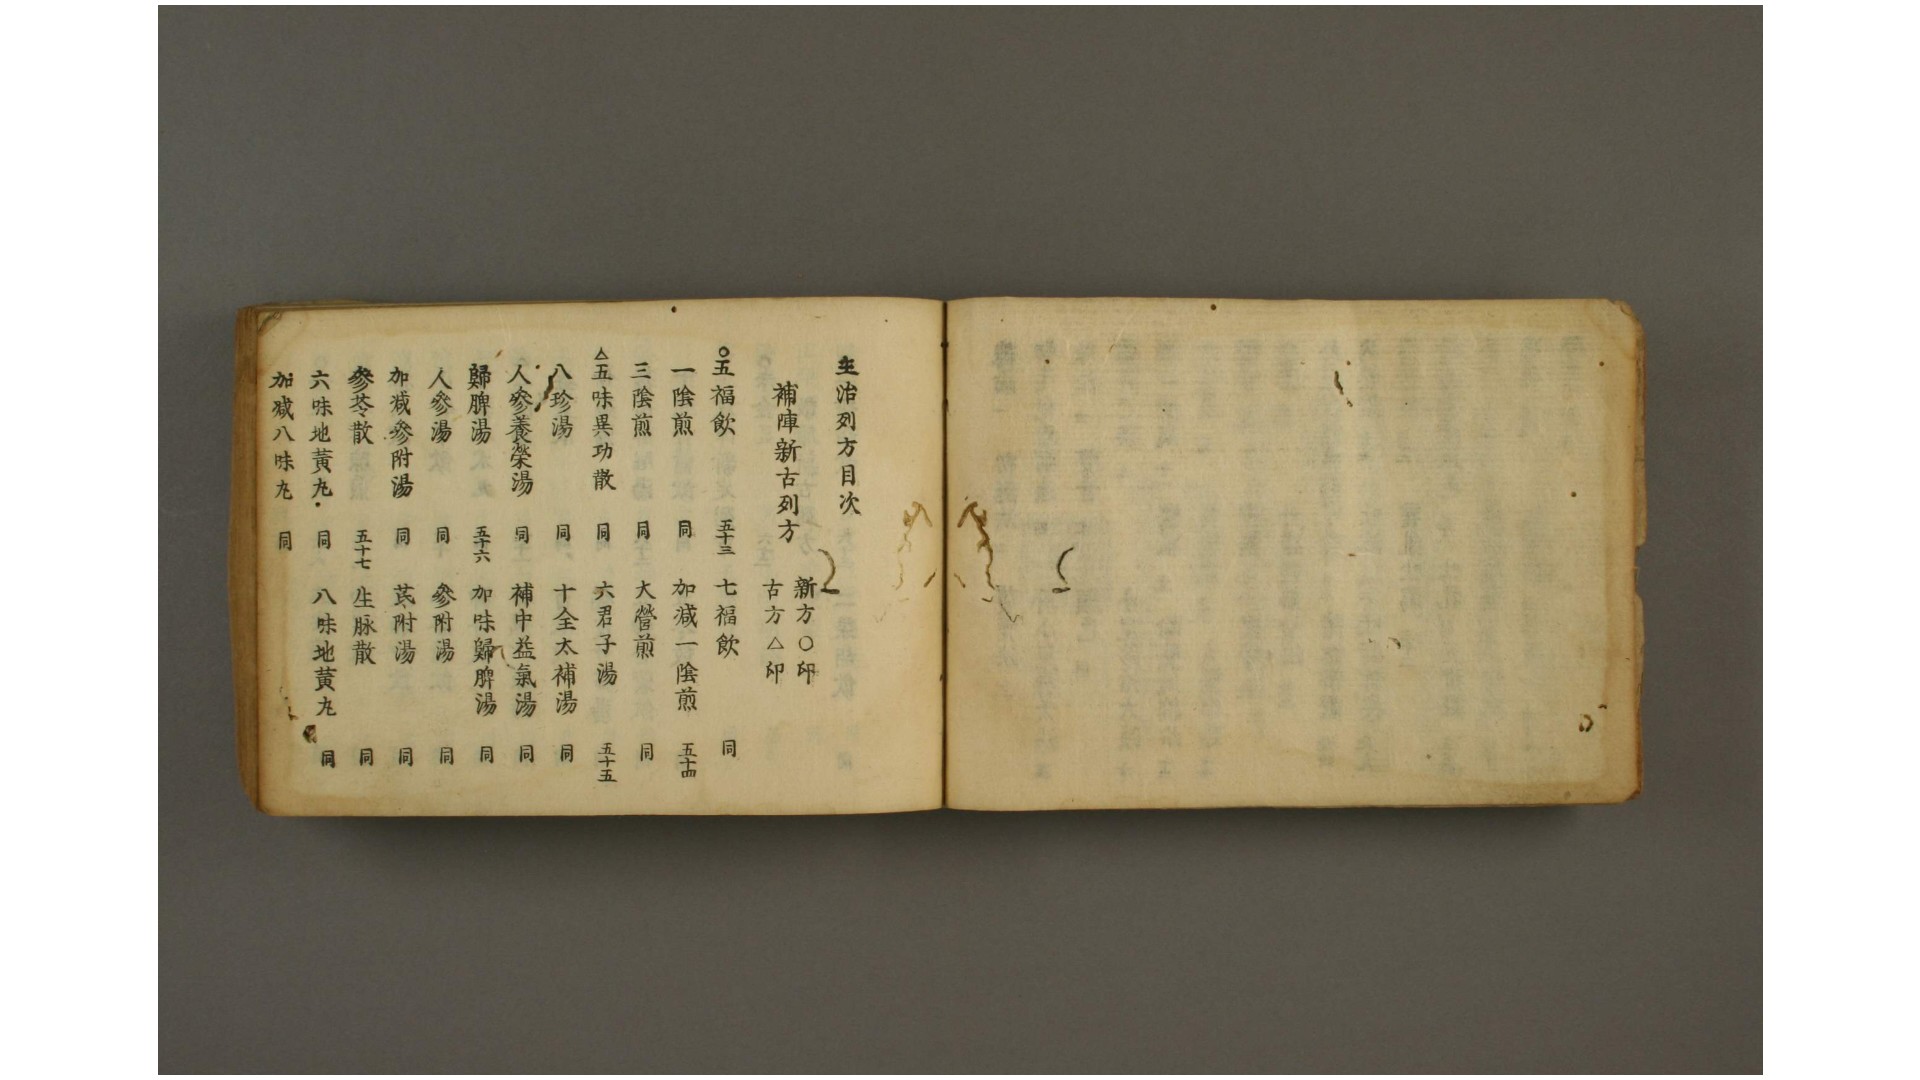 主治列方目次
補陣新古列方
新方○印
古方△印
○五福飲 五十三 七福飲 同
一陰煎 同 加減一陰煎 五十四
三陰煎 同 大營煎 同
△五味異功散 同 六君子湯 五十五
八珍湯 同 十全大補湯 同
人參養榮湯 同 補中益氣湯 同
歸脾湯 五十六 加味歸脾湯 同
人參湯 同 參附湯 同
加減參附湯 同 芪附湯 同
參苓散 五十七 生脉散 同
六味地黃丸 同 八味地黃丸 同
加減八味丸 同